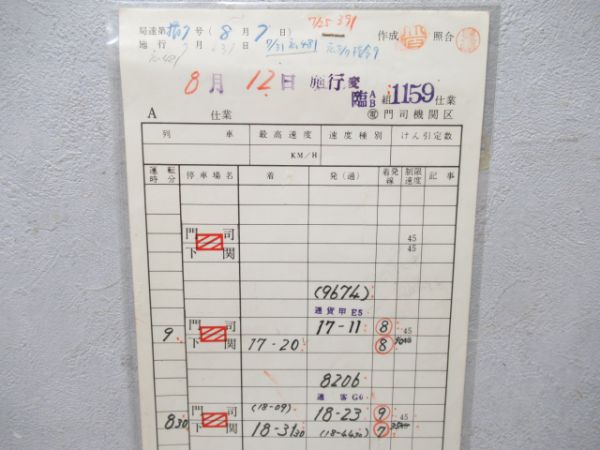 局達第 7号(8月7日) 7/25 391
施行 7月(31日) 7/31 元481
作成 照合
8月12日 施行変
臨AB組1159仕業
A 仕業 門司機関区
列車 最高速度 速度種別 けん引定数
KM/H
運転時分 停車場名 着 発(過) 着発線 制限速度 記事
門司 45
下関 45
(9674)
通貨甲 E5
9 門司 17-11 ⑧ 45
下関 17-20 ⑧
8206
通客 G6
門司 (18-09) 18-23 ⑨ 45
830 下関 18-3130 (18-4430) ⑦